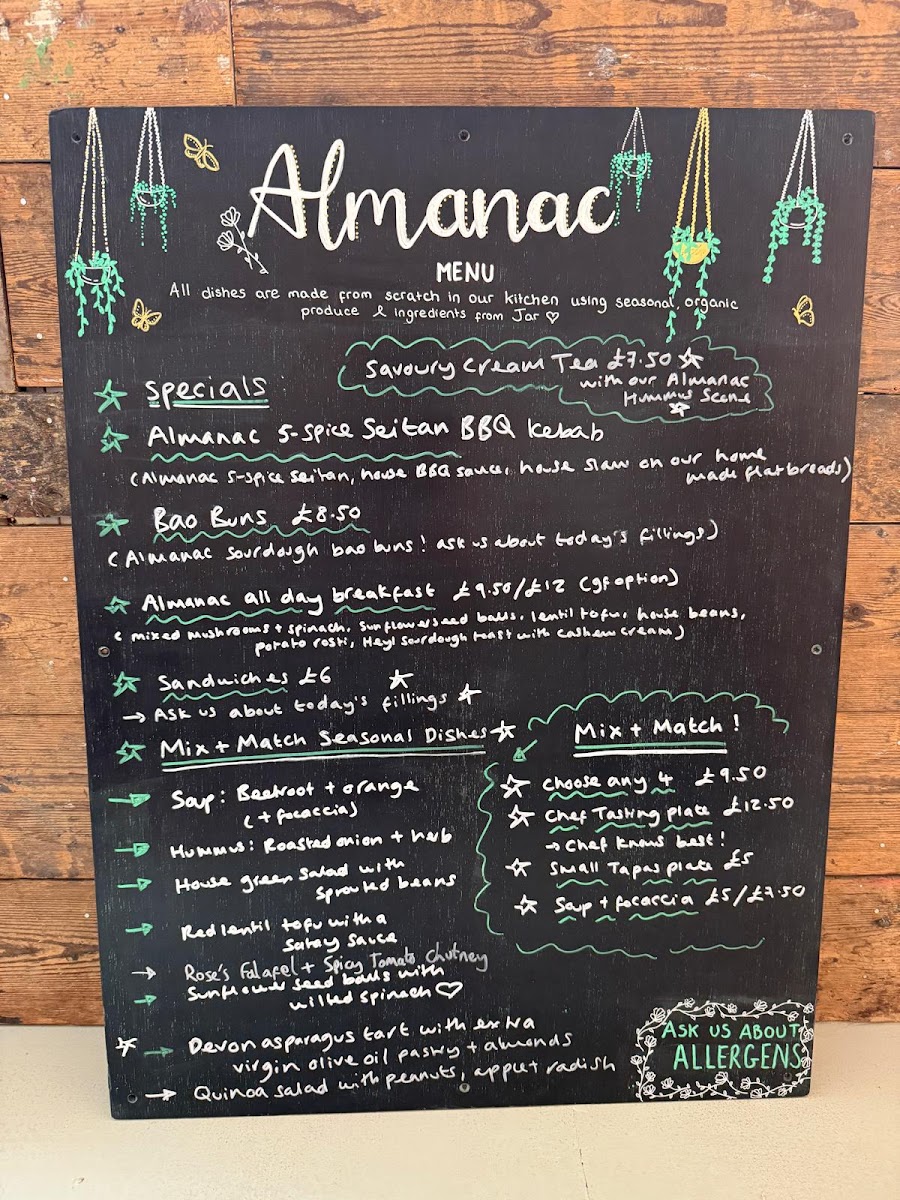 Almanac
MENU
All dishes are made from scratch in our kitchen using seasonal, organic
produce & ingredients from Jar ♡
Savoury Cream Tea £7.50 ☆
with our Almanac
Hummus Scone
Specials
Almanac 5-spice Seitan BBQ Kebab
(Almanac 5-spice seitan, house BBQ sauce, house slaw on our home
made flatbreads)
Bao Buns £8.50
(Almanac sourdough bao buns! ask us about today's fillings)
Almanac all day breakfast £9.50/£12 (gf option)
(mixed mushrooms + spinach, sunflower seed balls, lentil tofu, house beans,
potato rosti, Hey! sourdough toast with cashew cream)
Sandwiches £6
→ Ask us about today's fillings
Mix + Match Seasonal Dishes
Soup: Beetroot + orange
(+ focaccia)
Hummus: Roasted onion + herb
House green salad with
sprouted beans
Red lentil tofu with a
Satay sauce
Rose's Falafel + Spicy Tomato chutney
Sunflower seed balls with
wilted spinach ♡
Devon asparagus tart with extra
virgin olive oil pastry + almonds
Quinoa salad with peanuts, apple + radish
Mix + Match!
Choose any 4 £9.50
Chef Tasting plate £12.50
→ Chef knows best!
Small Tapas plate £5
Soup + focaccia £5/£7.50
ASK US ABOUT
ALLERGENS